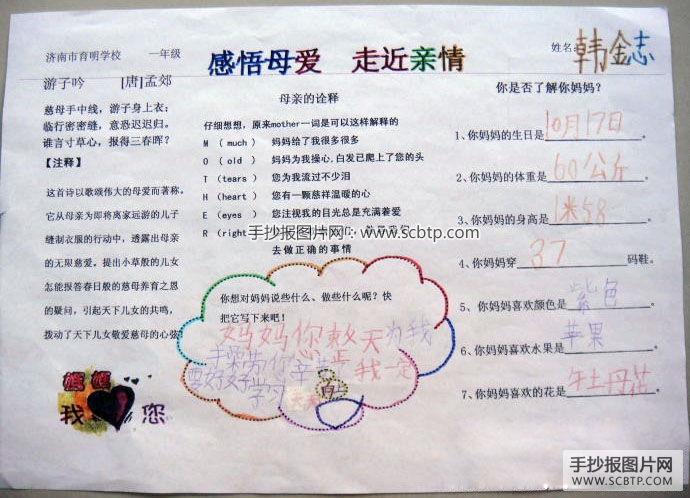 济南市育明学校 一年级
感悟母爱 走近亲情
姓名: 韩金志
游子吟 [唐]孟郊
慈母手中线，游子身上衣；
临行密密缝，意恐迟迟归。
谁言寸草心，报得三春晖？
【注释】
这首诗以歌颂伟大的母爱而著称。
它从母亲为即将离家远游的儿子
缝制衣服的行动中，透露出母亲
的无限慈爱。提出小草般的儿女
怎能报答春日般的慈母养育之恩
的疑问，引起天下儿女的共鸣，
拨动了天下儿女敬爱慈母的心弦？
妈妈
我 您
母亲的诠释
仔细想想，原来mother一词是可以这样解释的
M （much） 妈妈给了我很多很多
O （old） 妈妈为我操心,白发已爬上了您的头
T （tears） 您为我流过不少泪
H （heart） 您有一颗慈祥温暖的心
E （eyes） 您注视我的目光总是充满着爱
R （right
去做正确的事情
手抄报图片网：www.scbtp.com
你想对妈妈说些什么、做些什么呢？快
把它写下来吧！
妈妈您整天为我
我一定
要好好
学习
天天向上
你是否了解你妈妈？
1、你妈妈的生日是10月17日。
2、你妈妈的体重是60公斤。
3、你妈妈的身高是1米58。
4、你妈妈穿37码鞋。
5、你妈妈喜欢颜色是紫色。
6、你妈妈喜欢水果是苹果。
7、你妈妈喜欢的花是牡丹花。
手抄报图片网
WWW.SCBTP.COM